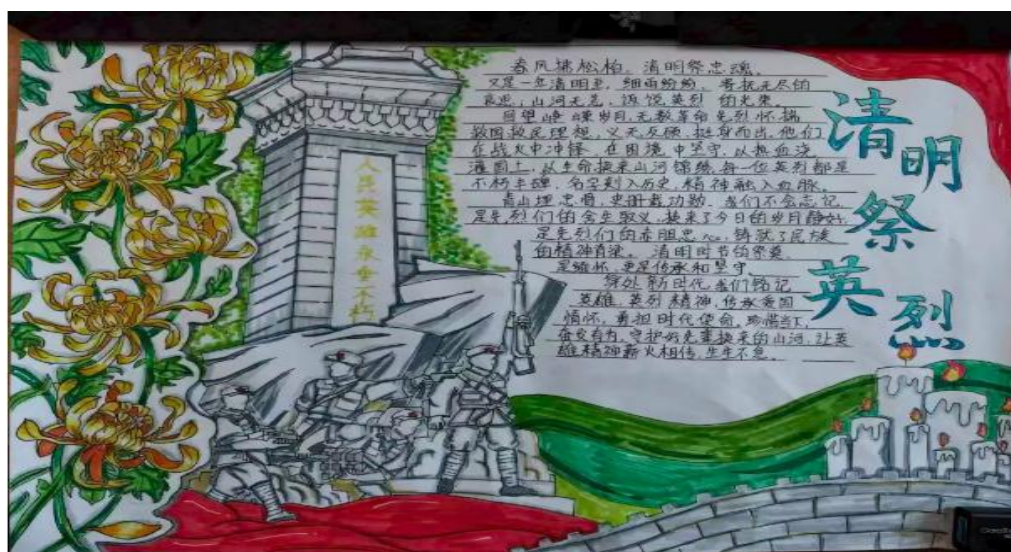 春风拂松柏，清明祭忠魂。
又是一年清明至，细雨纷纷，寄托无尽的
哀思；山河无恙，诉说英烈的光荣。
回望峥嵘岁月，无数革命先烈怀揣
救国救民理想，义无反顾，挺身而出。他们
在战火中冲锋，在困境中坚守，以热血浇
灌国土，以生命换来山河锦绣，每一位英烈都是
不朽丰碑，名字刻入历史，精神融入血脉。
青山埋忠骨，史册载功勋，我们不会忘记，
是先烈们的舍生取义，换来了今日的岁月静好，
是先烈们的赤胆忠心，铸就了民族
的精神脊梁。清明时节的祭奠，
是缅怀，更是传承和坚守。
身处新时代，我们铭记
英雄，英烈精神，传承爱国
情怀，勇担时代使命，珍惜当下，
奋发有为，守护好先辈换来的山河，让英
雄精神薪火相传，生生不息。
清明
祭
英
烈
人民英雄永垂不朽